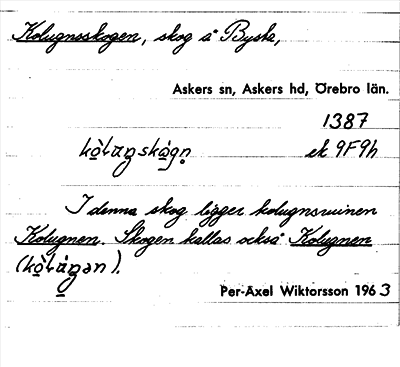 Kolugnsskogen, skog å Bysta,
Askers sn, Askers hd, Örebro län.
1387
ek 9F9h
I denna skog ligger kolugnsruinen
Kolugnen. Skogen kallas också Kolugnen
Per-Axel Wiktorsson 1963